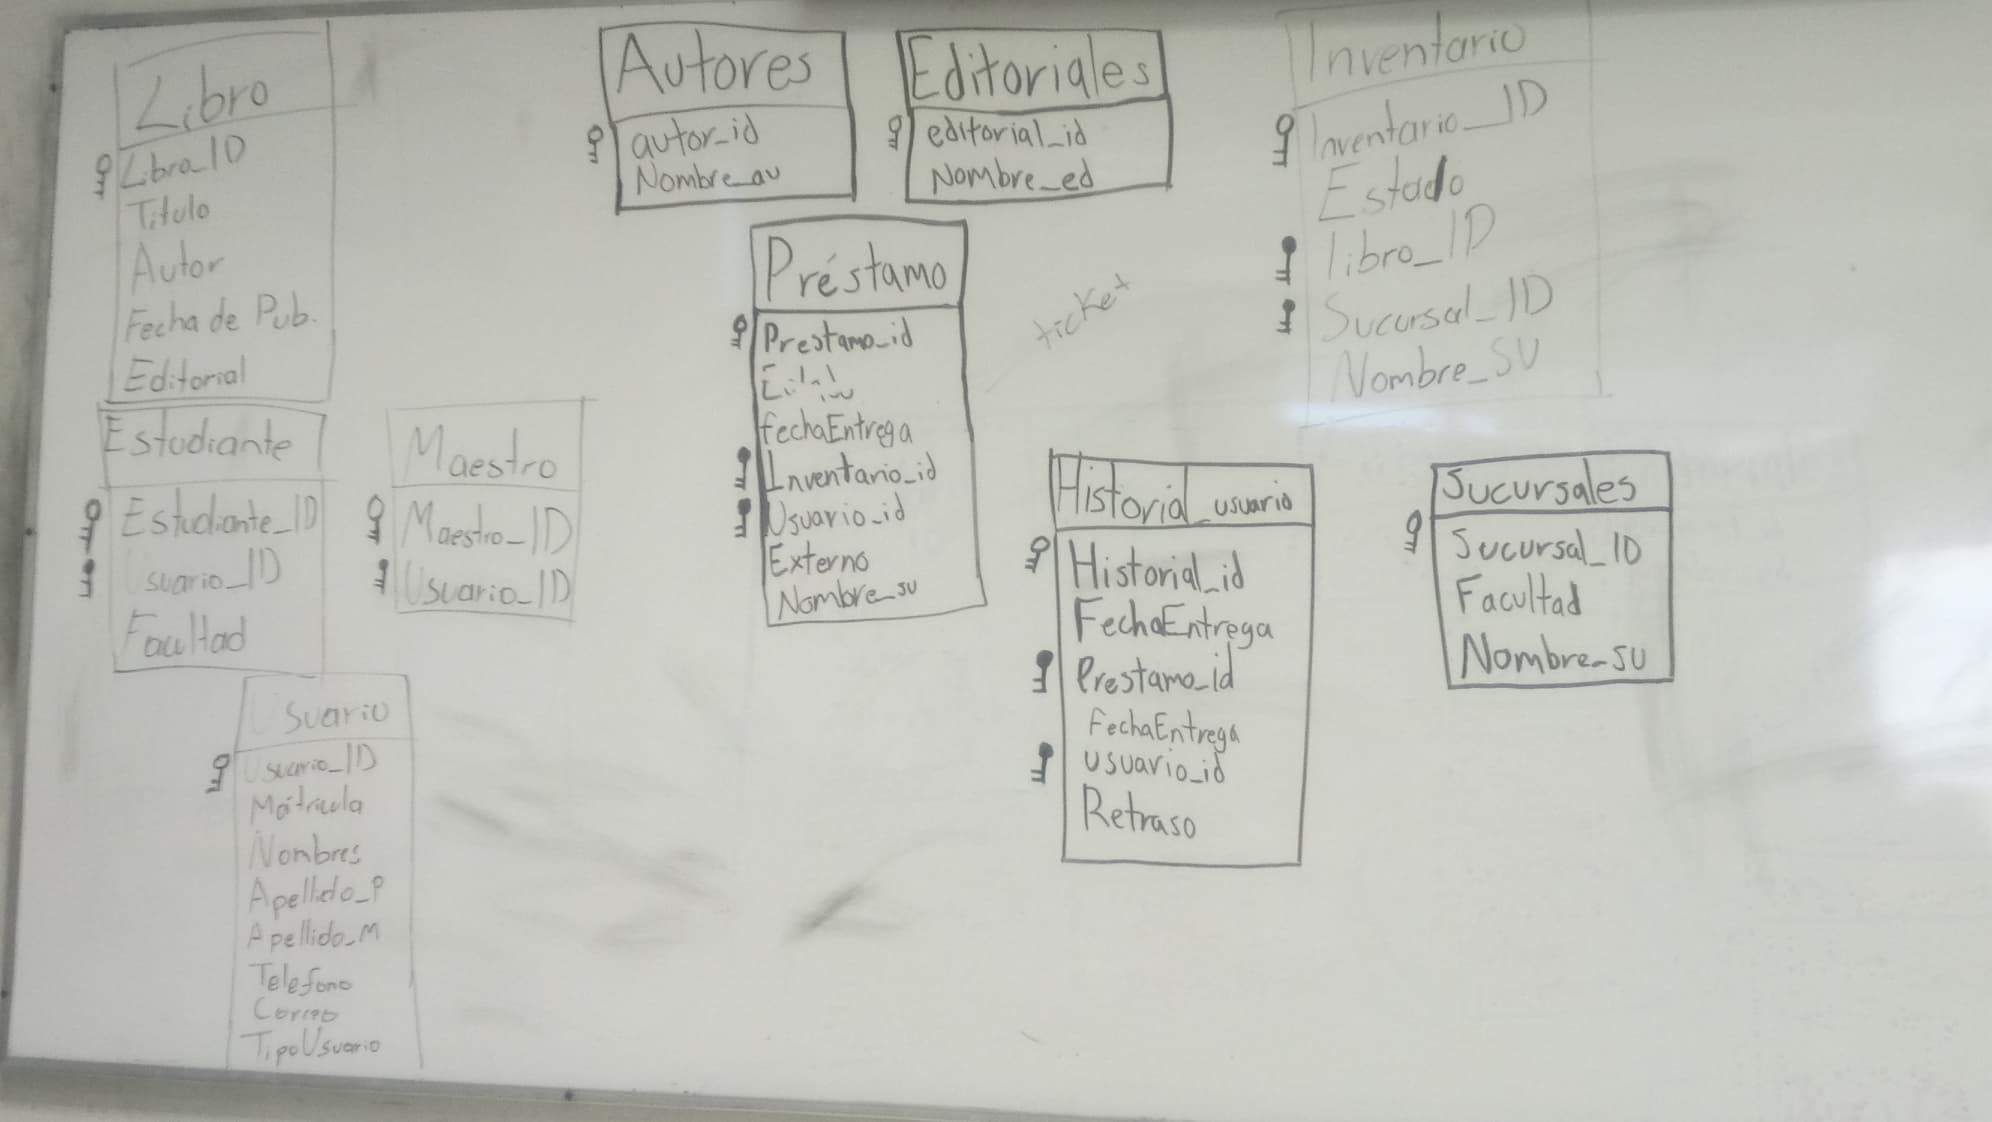 Libro
Libro_ID
Titulo
Autor
Fecha de Pub.
Editorial
Autores
autor_id
Nombre_au
Editoriales
editorial_id
Nombre_ed
Inventario
Inventario_ID
Estado
libro_ID
Sucursal_ID
Nombre_SU
Préstamo
Prestamo_id
fechaEntrega
Inventario_id
Usuario_id
Externo
Nombre_su
ticket
Estudiante
Estudiante_ID
Usuario_ID
Facultad
Maestro
Maestro_ID
Usuario_ID
Historial_usuario
Historial_id
FechaEntrega
Prestamo_id
FechaEntrega
usuario_id
Retraso
Sucursales
Sucursal_ID
Facultad
Nombre_SU
Usuario
Usuario_ID
Matricula
Nombres
Apellido_P
Apellido_M
Telefono
Correo
TipoUsuario